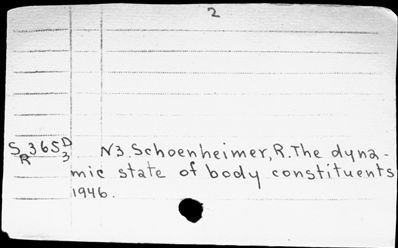 2
SR365D3 N3. Schoenheimer, R. The dyna-
mic state of body constituents
1946.